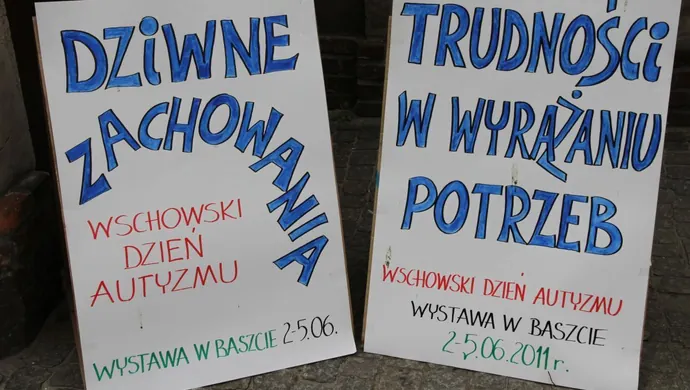 DZIWNE
ZACHOWANIA
WSCHOWSKI
DZIEŃ
AUTYZMU
WYSTAWA W BASZCIE 2-5.06.
TRUDNOŚCI
W WYRĄŻANIU
POTRZEB
WSCHOWSKI DZIEŃ AUTYZMU
WYSTAWA W BASZCIE
2-5.06.2011 r.